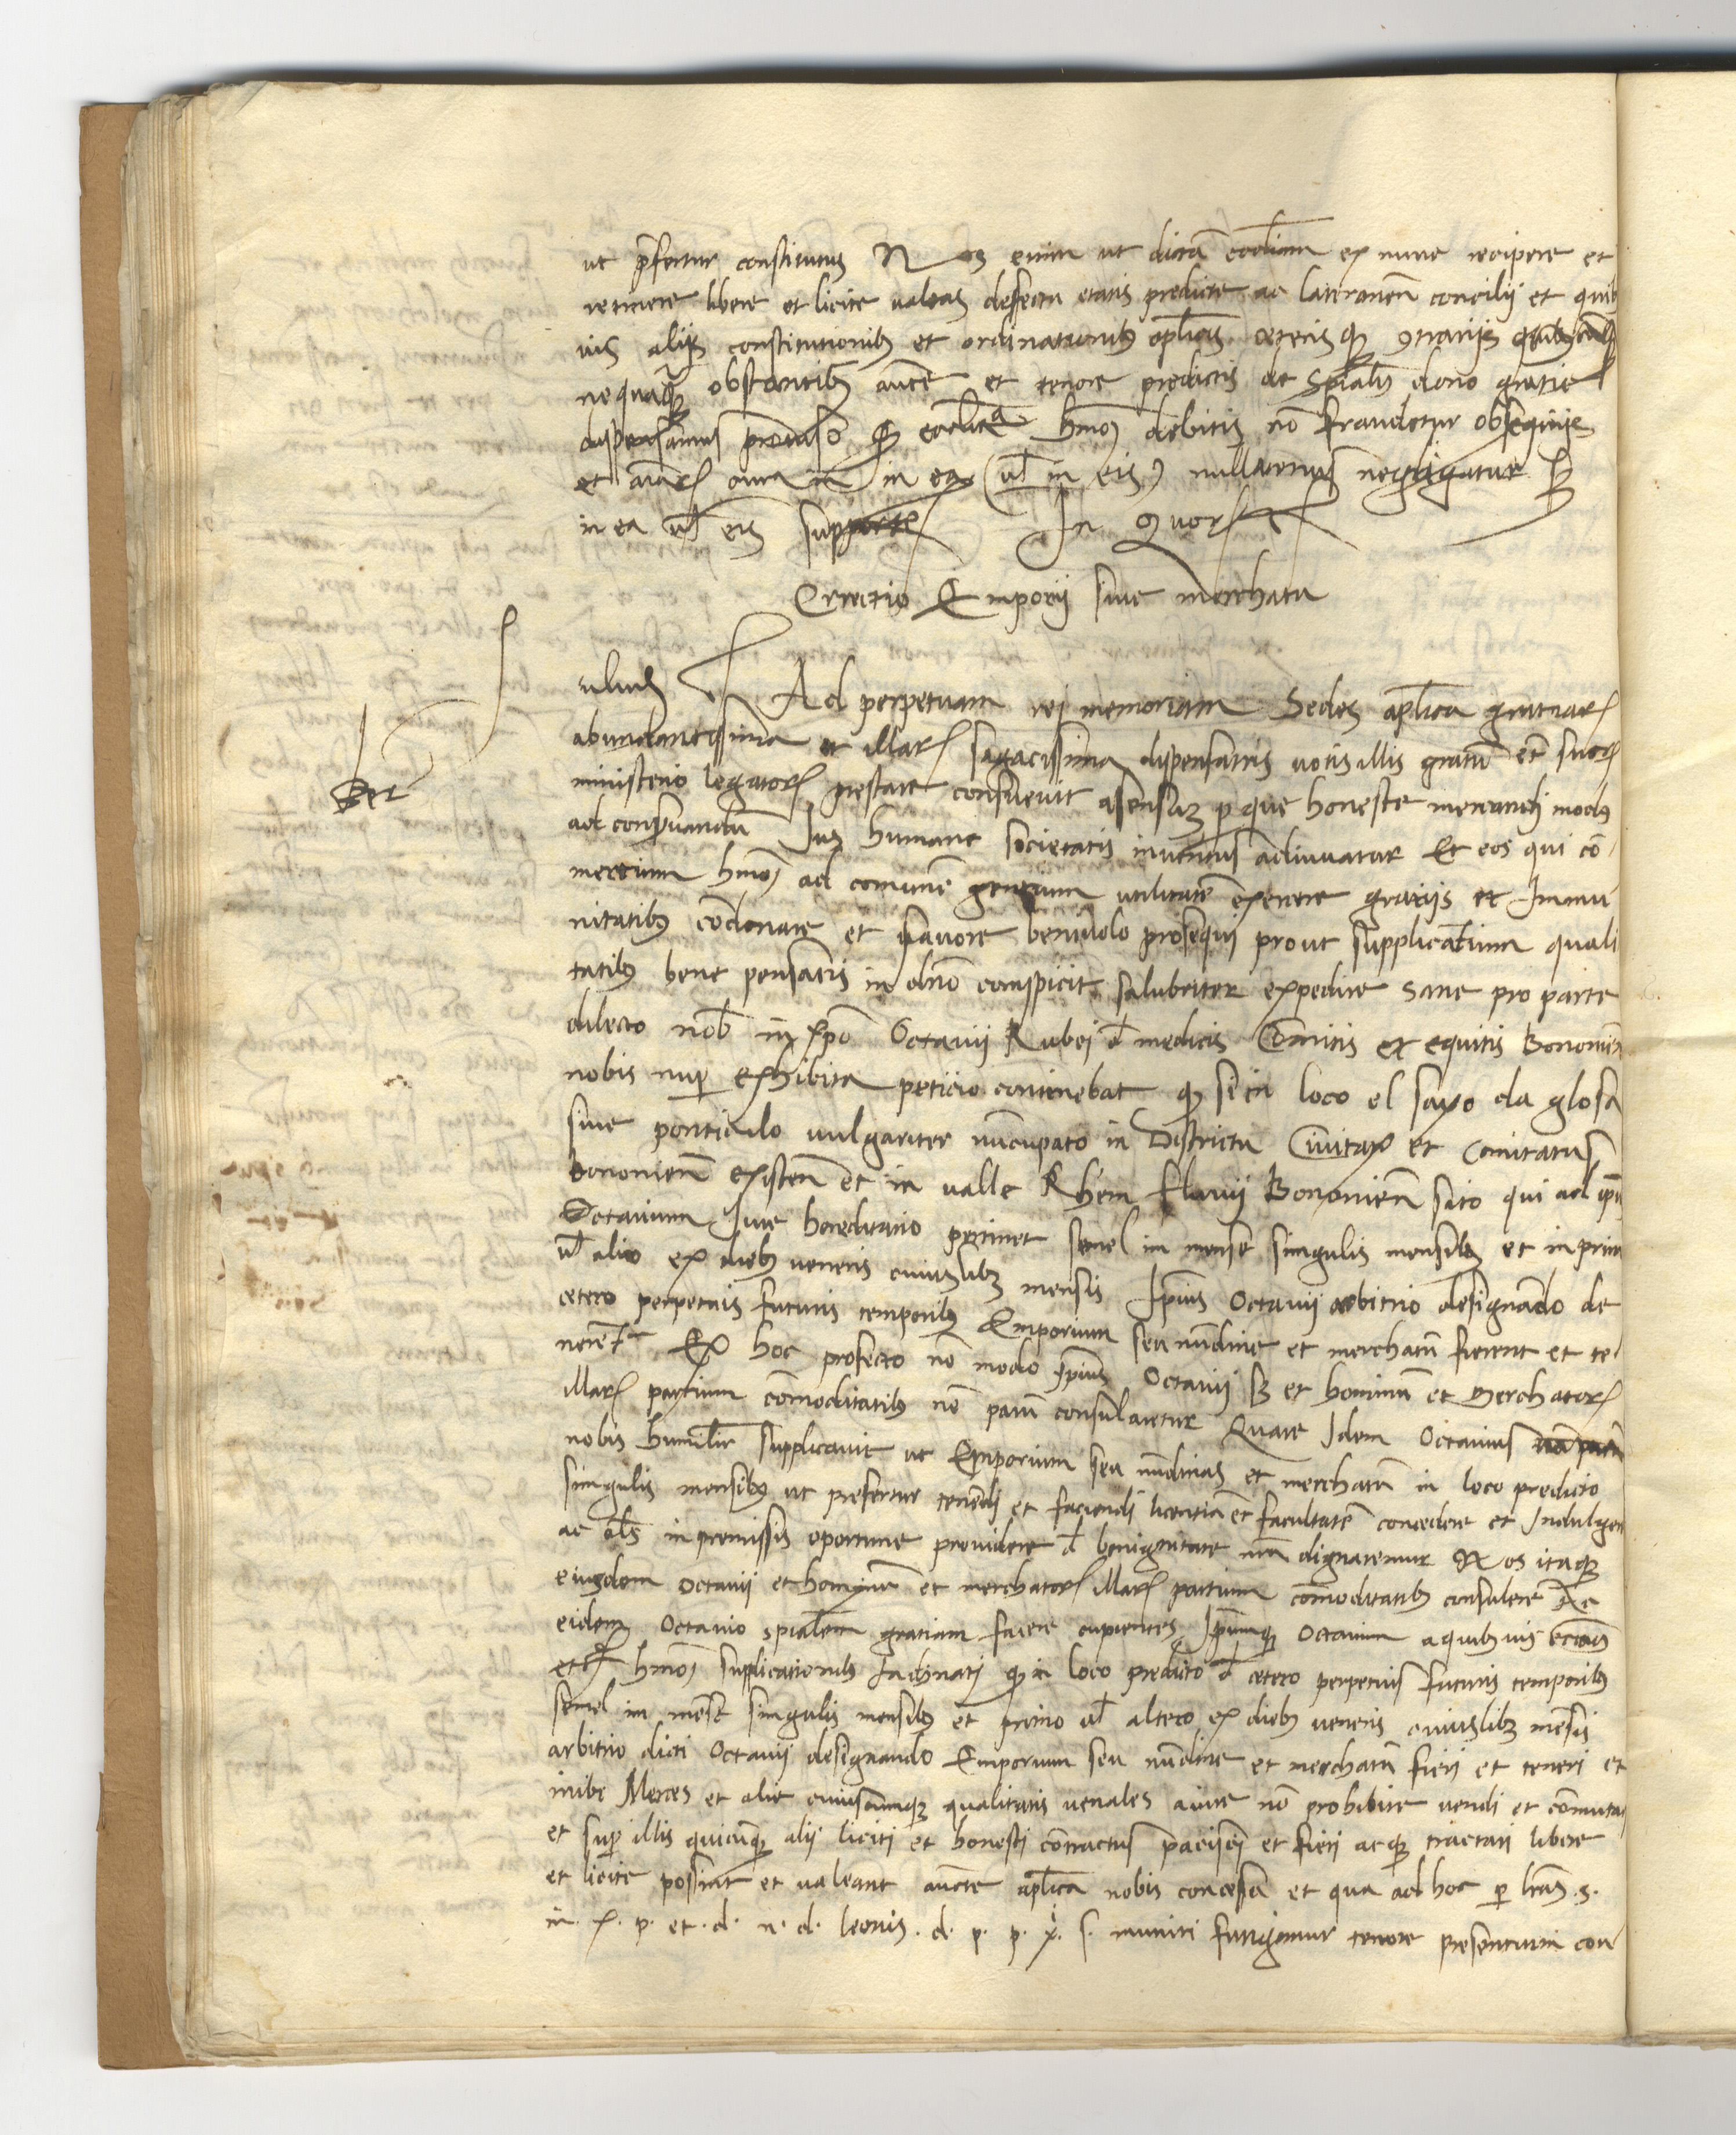 ut p̄fertur constitutus Nos enim ut dictā eccl̄iam ex nunc recipere et
retinere libere et licite valeas defectu etatis predicte ac lateranen̄ concilij et quib
vis alijs constitutionibꝰ et ordinationibꝰ apl̄icis ceterisqꝫ ꝯtrarijs quibuscūqꝫ
nequaqꝫ obstantibꝰ aucte et tenore predictis de spiali dono gratie
dispensamus proviso qꝫ eccl̄ia hmōi debitis nō fraudetur obsequijs
et aiarꝫ cura in ea (vl̄ in eis) nullatenus negligatur sꝫ
in ea vl̄ eis supportetꝫ In quorꝫ
Errectio Emporij sive merchatu
Ad perpetuam rei memoriam Sedes apl̄ica gratiarꝫ
abundantissima et illarꝫ sagacissima dispensatris votis illis gratū et suorꝫ
ministerio legatorꝫ prestare consuevit asensuꝫ p que honeste mercandi modus
ad conservandū Jus humane societatis inventus adiuvatur Et eos qui cō
mercium hmōi ad comunē gentium utilitatē exercere gratijs et Immu
nitatibꝰ cōdonare et favore benivolo prosequi prout supplicatium quali
tatibꝰ bene pensatis in dnō conspicit salubriter expedire Sane pro parte
dilecto nob̄ in xp̄o Octavij Rubei d̄ medicis Comitis et equitis Bononien̄
nobis nup exhibita peticio continebat qꝫ si in loco el saxo da glosa
sive ponticulo vulgariter nūcupato in Districtu Civitatꝫ et Comitatus
bononien̄ existen̄ et in valle Rheni fluvij Bononien̄ sito qui ad ipsū
Octavium Jure hereditario pertinet semel in mense singulis mensibꝰ et in primo
vl̄ alio ex diebꝰ veneris cuiuslibꝫ mensis Ipsius Octavij arbitrio designādo de
cetero perpetuis futuris temporibꝰ Emporium seu nūdine et merchatū fierent et te
nerēt Ex hoc profecto nō modo ipsius Octavij sꝫ et hominū et Merchatorꝫ
illarꝫ partium cōmoditatibꝰ nō parū consularetur Quare Idem Octavius
nobis humilr̄ supplicavit ut Emporium seu nūdinas et merchatū in loco predicto
singulis mensibꝰ ut prefertur tenendi et faciendi licentiā et facultatē concedere et Indulgere
ac al̄s in premissis oportune providere d̄ benignitate nrā dignaremur Nos itaqꝫ
eiusdem Octavij et hominū et merchatorꝫ illarꝫ partium cōmoditatibꝰ consulere Ac
eidem Octavio spialem gratiam facere cupientes Ipsumqꝫ Octavium a quibusvis
etcꝫ hmōi supplicationibꝰ Inclinati qꝫ in loco predicto d̄ cetero perpetuis futuris temporibꝰ
semel in mēse singulis mensibꝰ et primo vl̄ altero ex diebꝰ veneris cuiuslibꝫ mēsis
arbitrio dicti Octavij designando Emporium seu nūdine et merchatū fieri et teneri et
inibi Merces et alie cuiuscumqꝫ qualitatis venales a iure nō prohibite vendi et cōmutari
et sup illis quicūqꝫ alij liciti et honesti cōtractus pacisci et fieri acqꝫ tractari libere
et licite possint et valeant aucte apl̄ica nobis concessa et qua ad hoc p lras .s.
in . x. p. et . d. n. d. leonis . d. p. p. x. s. muniti fungimur tenore presentium con